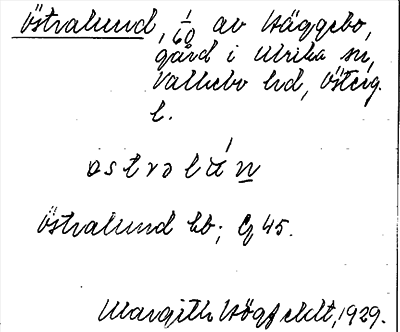 Östralund, 1/60 av Häggebo,
gård i Ulrika sn,
Vallebo hd, Österg.
l.
østrəlún
Östralund hb; Cg 45.
Margith Högfeldt, 1929.